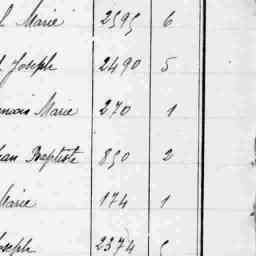 Marie 2595 6
Joseph 2490 5
Marie 270 1
Baptiste 850 2
Marie 174 1
Joseph 2374